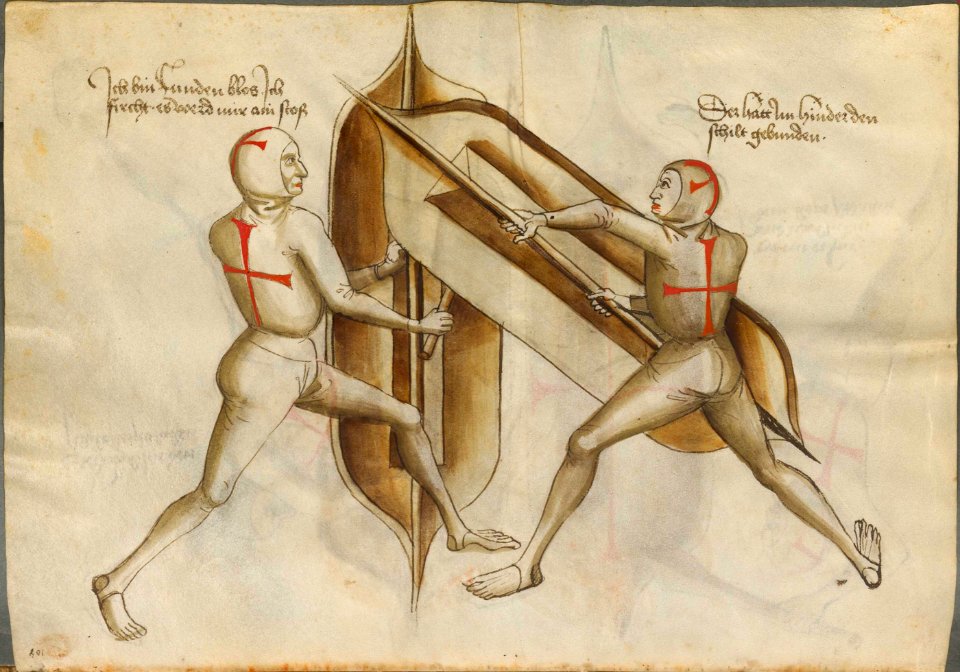 Ich bin hinden blos Ich
fircht es werd mir ain stoß
Der hatt Im hinder den
schilt gebunden.
101